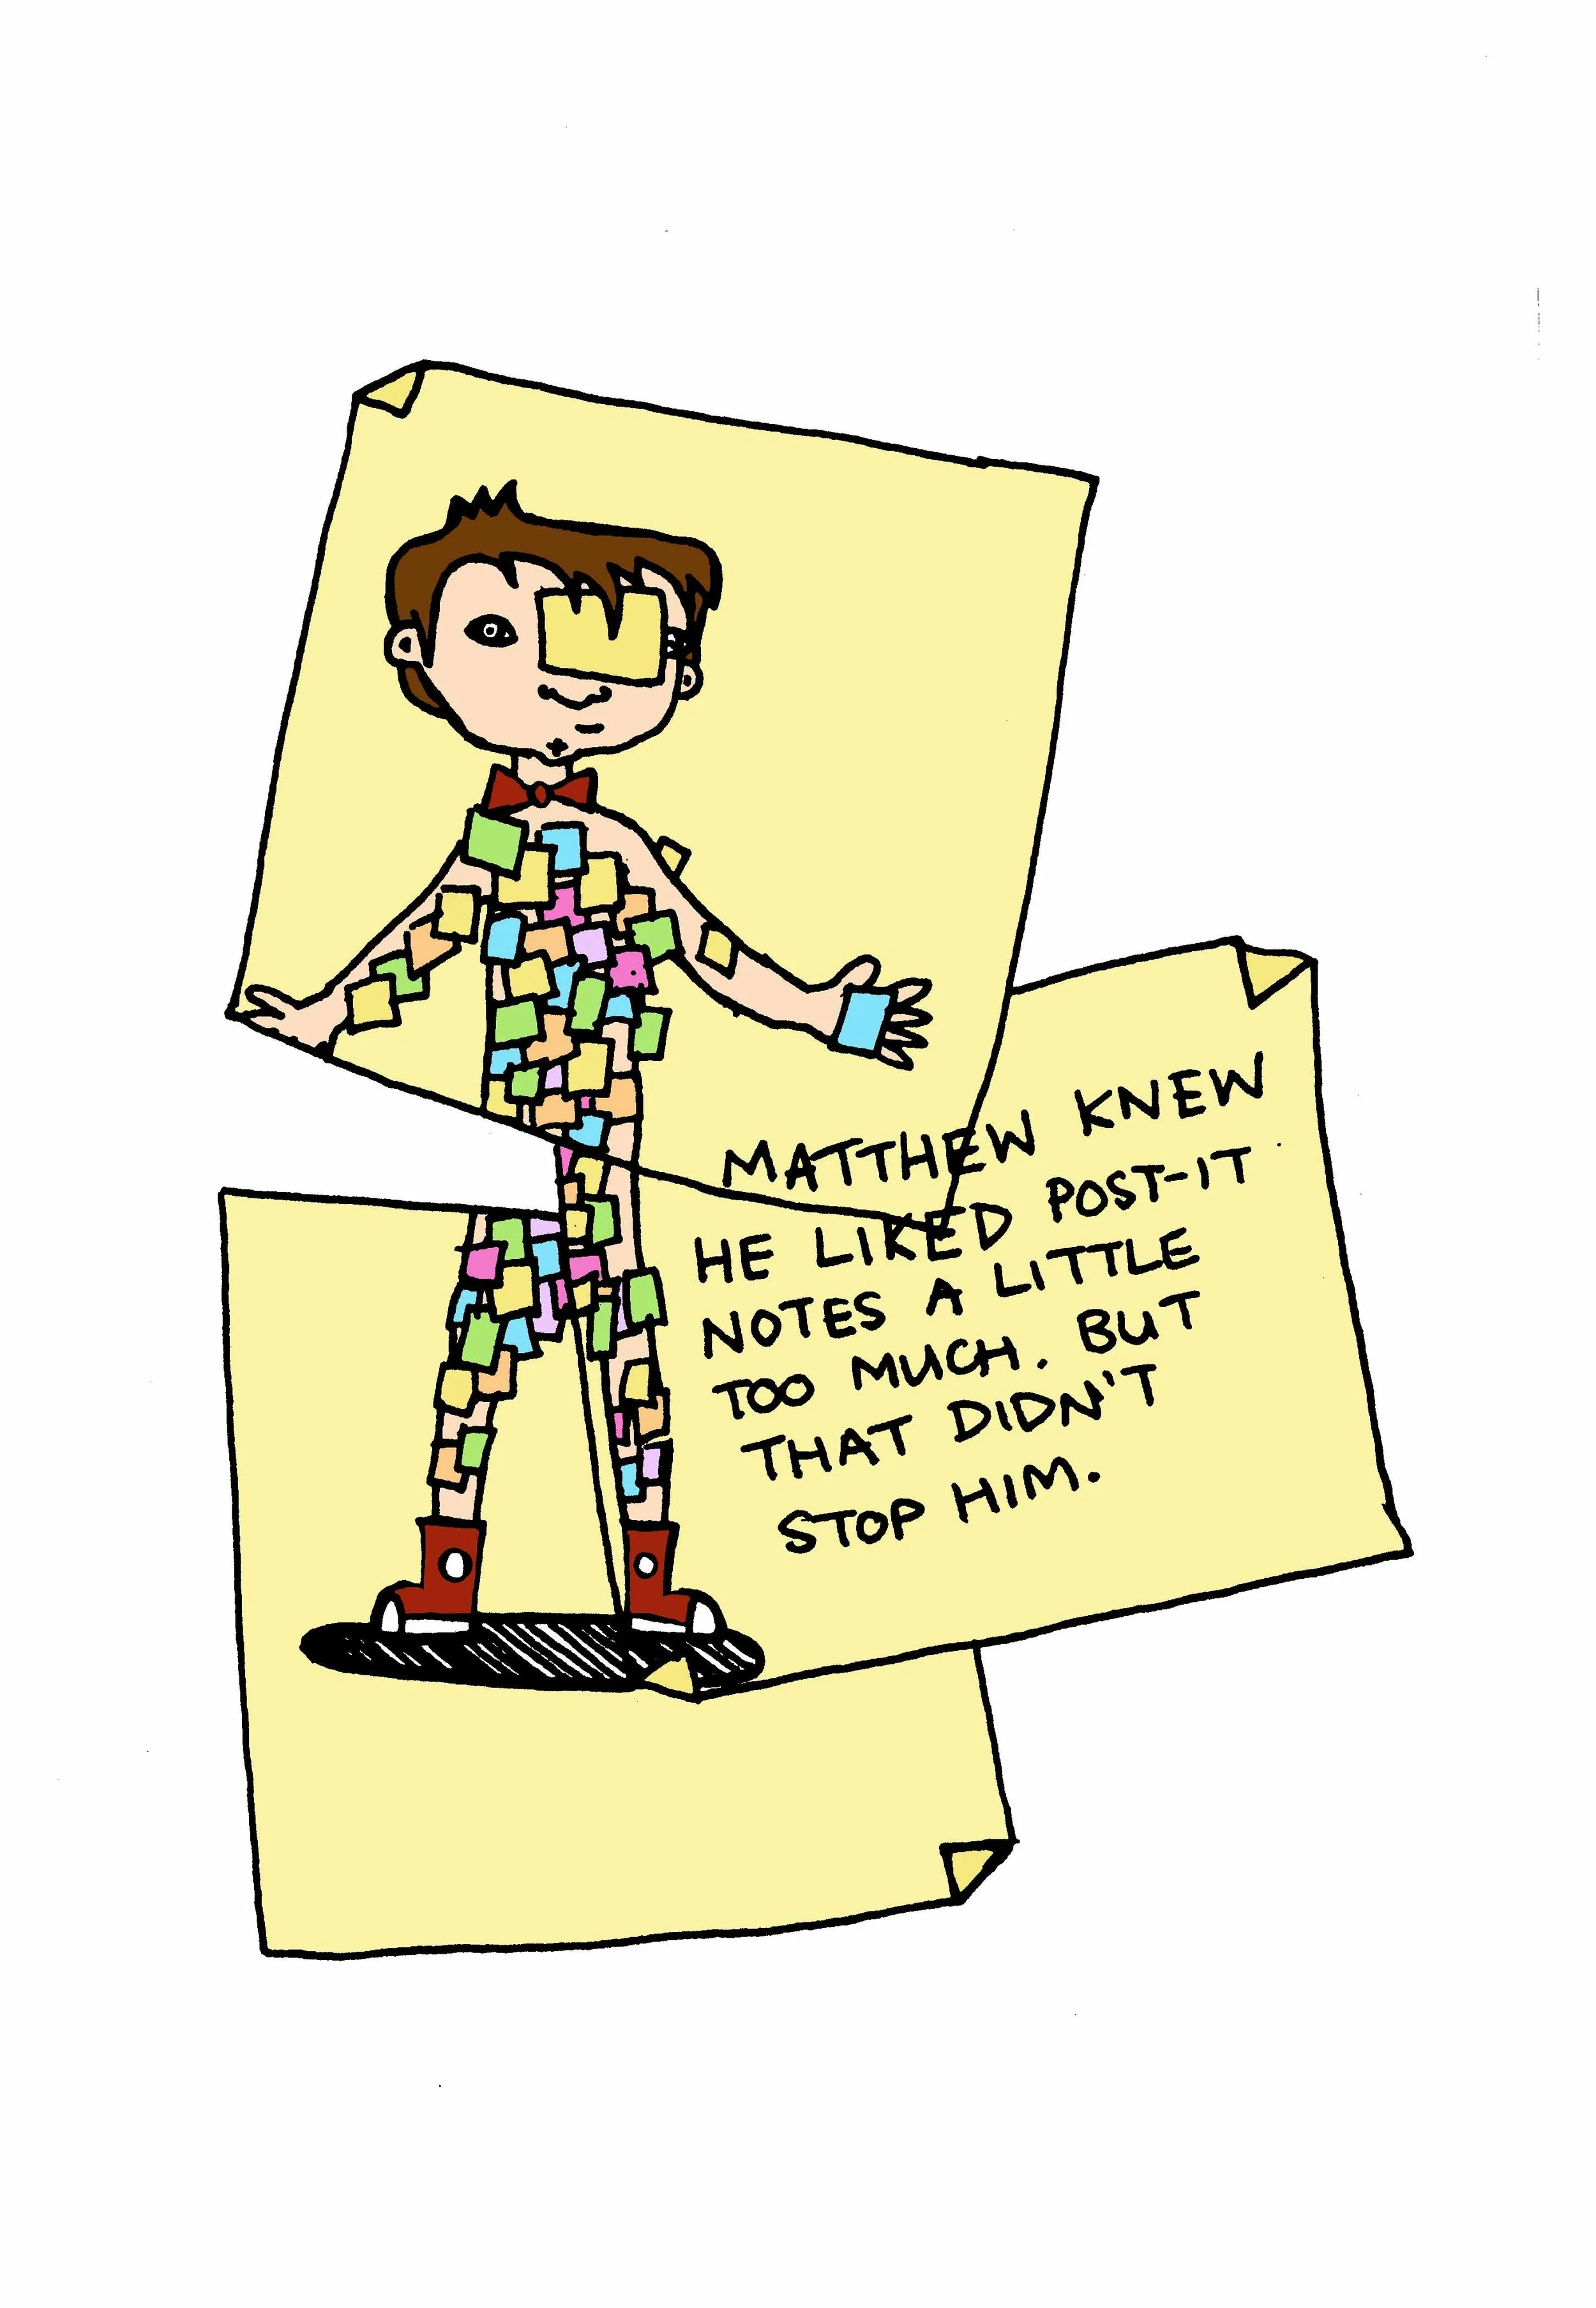 MATTHEW KNEW
HE LIKED POST-IT
NOTES A LITTLE
TOO MUCH. BUT
THAT DIDN'T
STOP HIM.